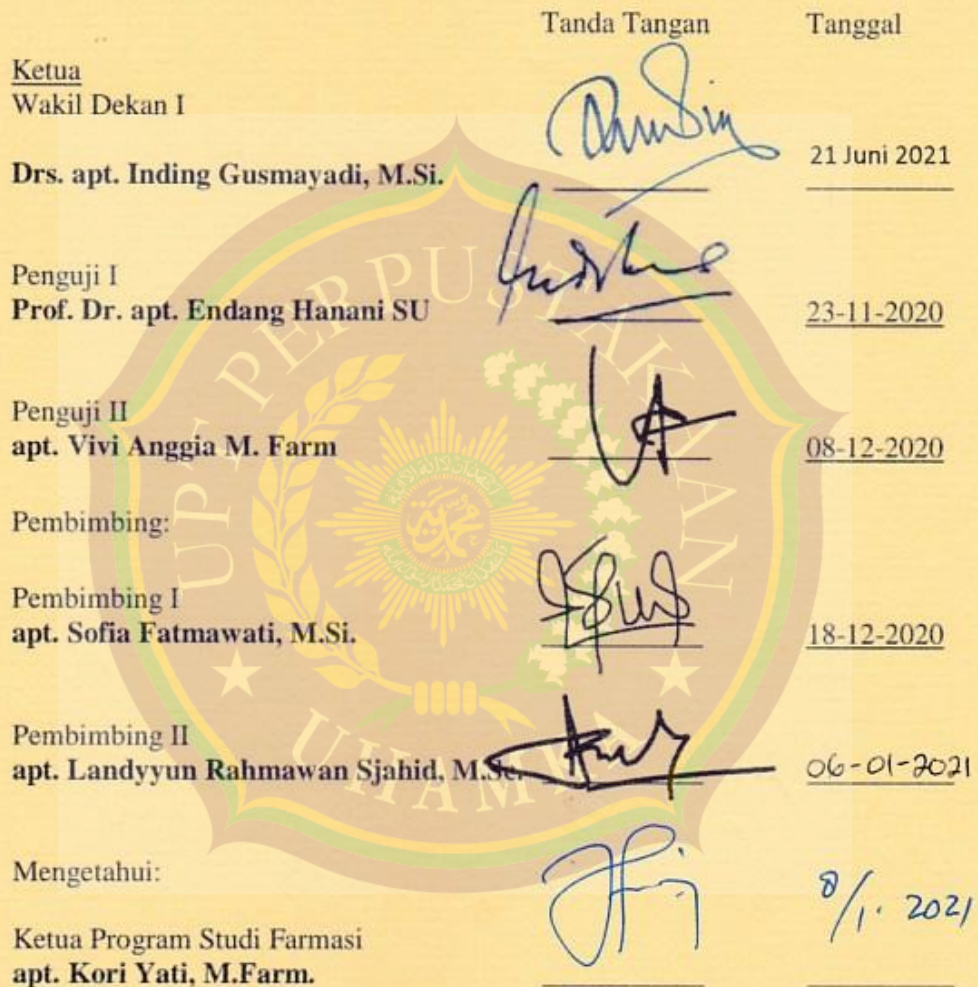 Tanda Tangan Tanggal
Ketua
Wakil Dekan I
Drs. apt. Inding Gusmayadi, M.Si. 21 Juni 2021
Penguji I
Prof. Dr. apt. Endang Hanani SU 23-11-2020
Penguji II
apt. Vivi Anggia M. Farm 08-12-2020
Pembimbing:
Pembimbing I
apt. Sofia Fatmawati, M.Si. 18-12-2020
Pembimbing II
apt. Landyyun Rahmawan Sjahid, M.Sc. 06-01-2021
Mengetahui:
Ketua Program Studi Farmasi 8/1. 2021
apt. Kori Yati, M.Farm.
UPT PERPUSTAKAAN
UHAMKA